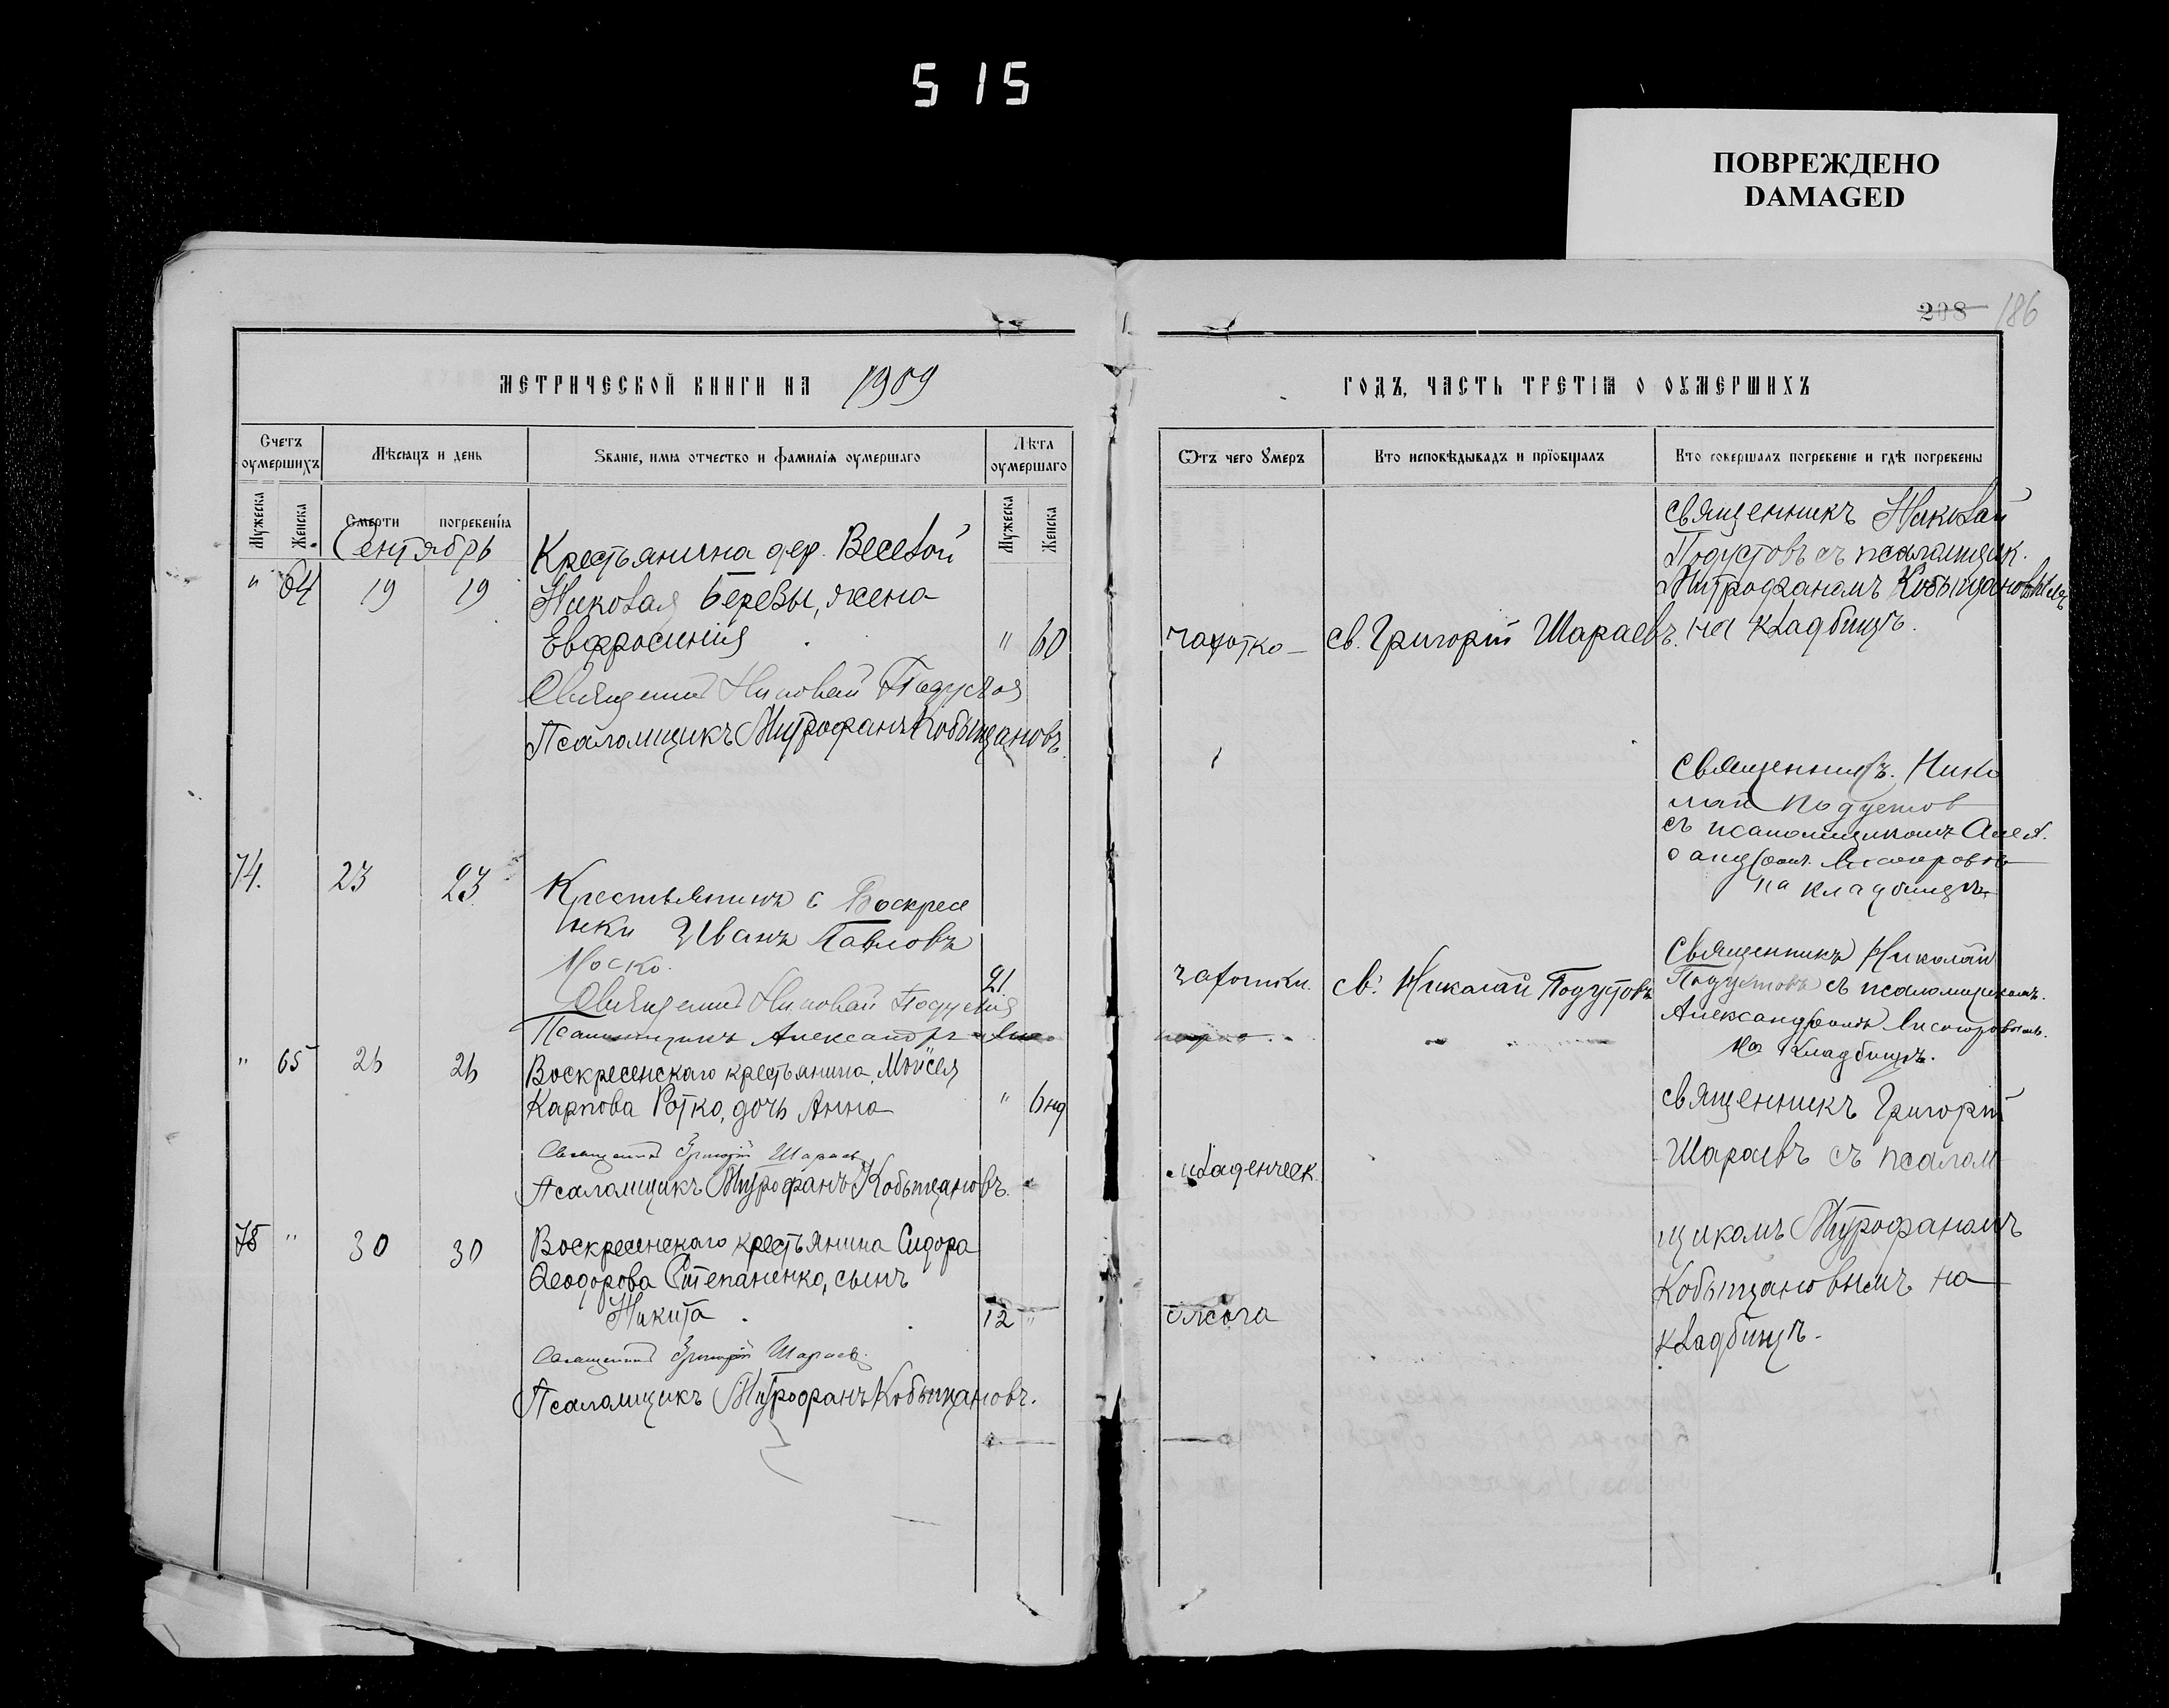 515
ПОВРЕЖДЕНО
DAMAGED
208 186
МЕТРИЧЕСКОЙ КНИГИ НА 1909
ГОДЪ, ЧАСТЬ ТРЕТІЯ О ОУМЕРШИХЪ
Счетъ оумершихъ
Мѣсяцъ и день
Званіе, имя отчество и фамилія оумершаго
Лѣта оумершаго
Отъ чего Умеръ
Кто исповѣдывалъ и пріобщалъ
Кто совершалъ погребеніе и гдѣ погребены
Мужеска
Женска
Смерти
погребенія
Мужеска
Женска
Сентябрь
" 64 19 19
Крестьянина дер. Веселой
Николая Березы, жена
Евфросинія " 60
чахотко
св. Григорій Шараевъ.
священникъ Николай
Подустовъ съ псаломщик.
Митрофаномъ Кобыщановымъ
на кладбищѣ.
Священникъ Николай Подустов
Псаломщикъ Митрофанъ Кобыщановъ.
священникъ. Нико
лай Подустов
съ псаломщикомъ
на кладбищѣ
74. 23 23
Крестьянинъ с Воскресе
нки Иванъ Павловъ
Носко.
21
чахотки.
св. Николай Подустовъ
Священникъ Николай
Подустовъ съ псаломщикомъ.
Александромъ
на кладбищѣ.
Священникъ Николай Подустов
Псаломщикъ Александръ
" 65 26 26
Воскресенскаго крестьянина, Мойсея
Карпова Ротко, дочь Анна " 6 нд
младенческ.
Священникъ Григорій Шараев
Псаломщикъ Митрофанъ Кобыщановъ.
священникъ Григорій
Шараевъ съ псалом
щикомъ Митрофаномъ
Кобыщановымъ на
кладбищѣ.
75 " 30 30
Воскресенскаго крестьянина Сидора
Ѳеодорова Степаненко, сынъ
Никита 12 "
ожога
Священникъ Григорій Шараев
Псаломщикъ Митрофанъ Кобыщановъ.